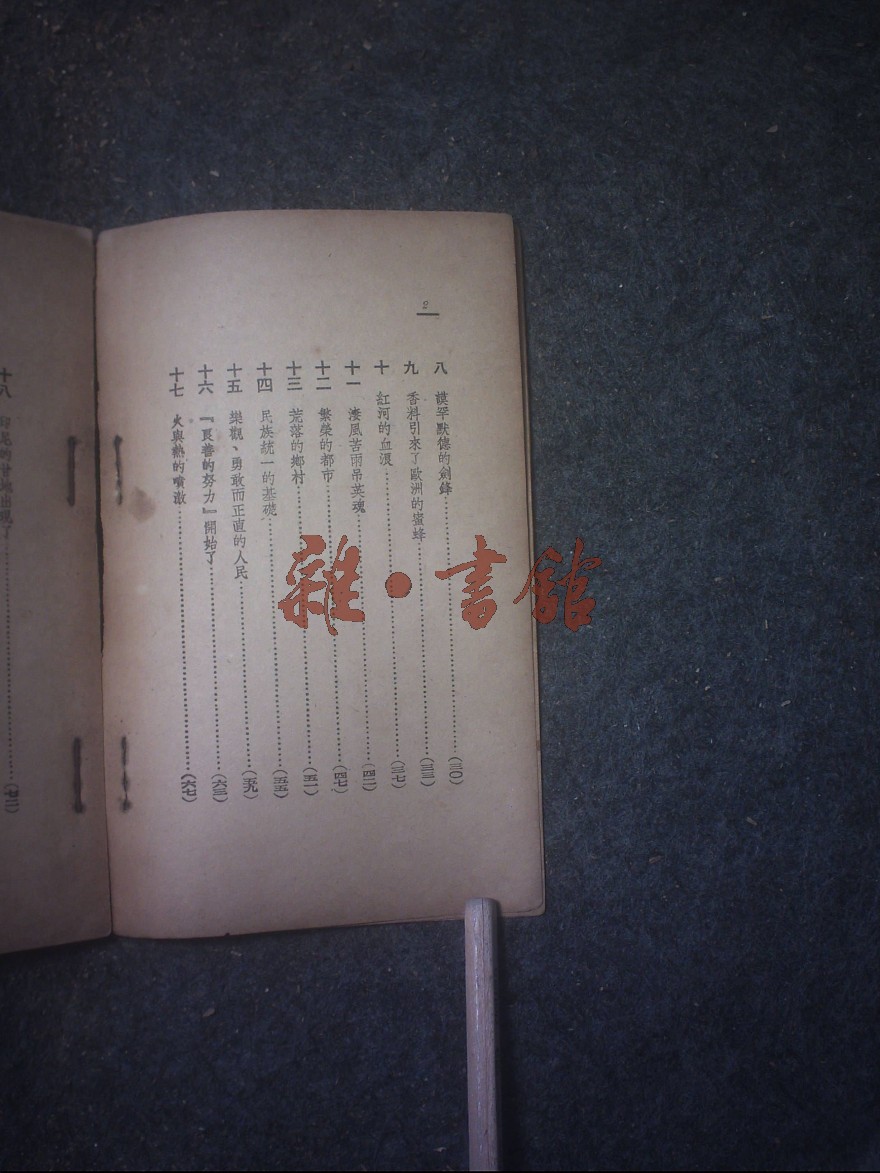 2
八 謨罕默德的劍鋒……(三〇)
九 香料引來了歐洲的蜜蜂……(三三)
十 紅河的血淚……(三七)
十一 淒風苦雨吊英魂……(四二)
十二 繁榮的都市……(四七)
十三 荒落的鄉村……(五一)
十四 民族統一的基礎……(五五)
十五 樂觀、勇敢而正直的人民……(五九)
十六 『良善的努力』開始了……(六三)
十七 火與熱的噴激……(六七)
十八 印尼的甘地出現了……(七二)
雜·書館